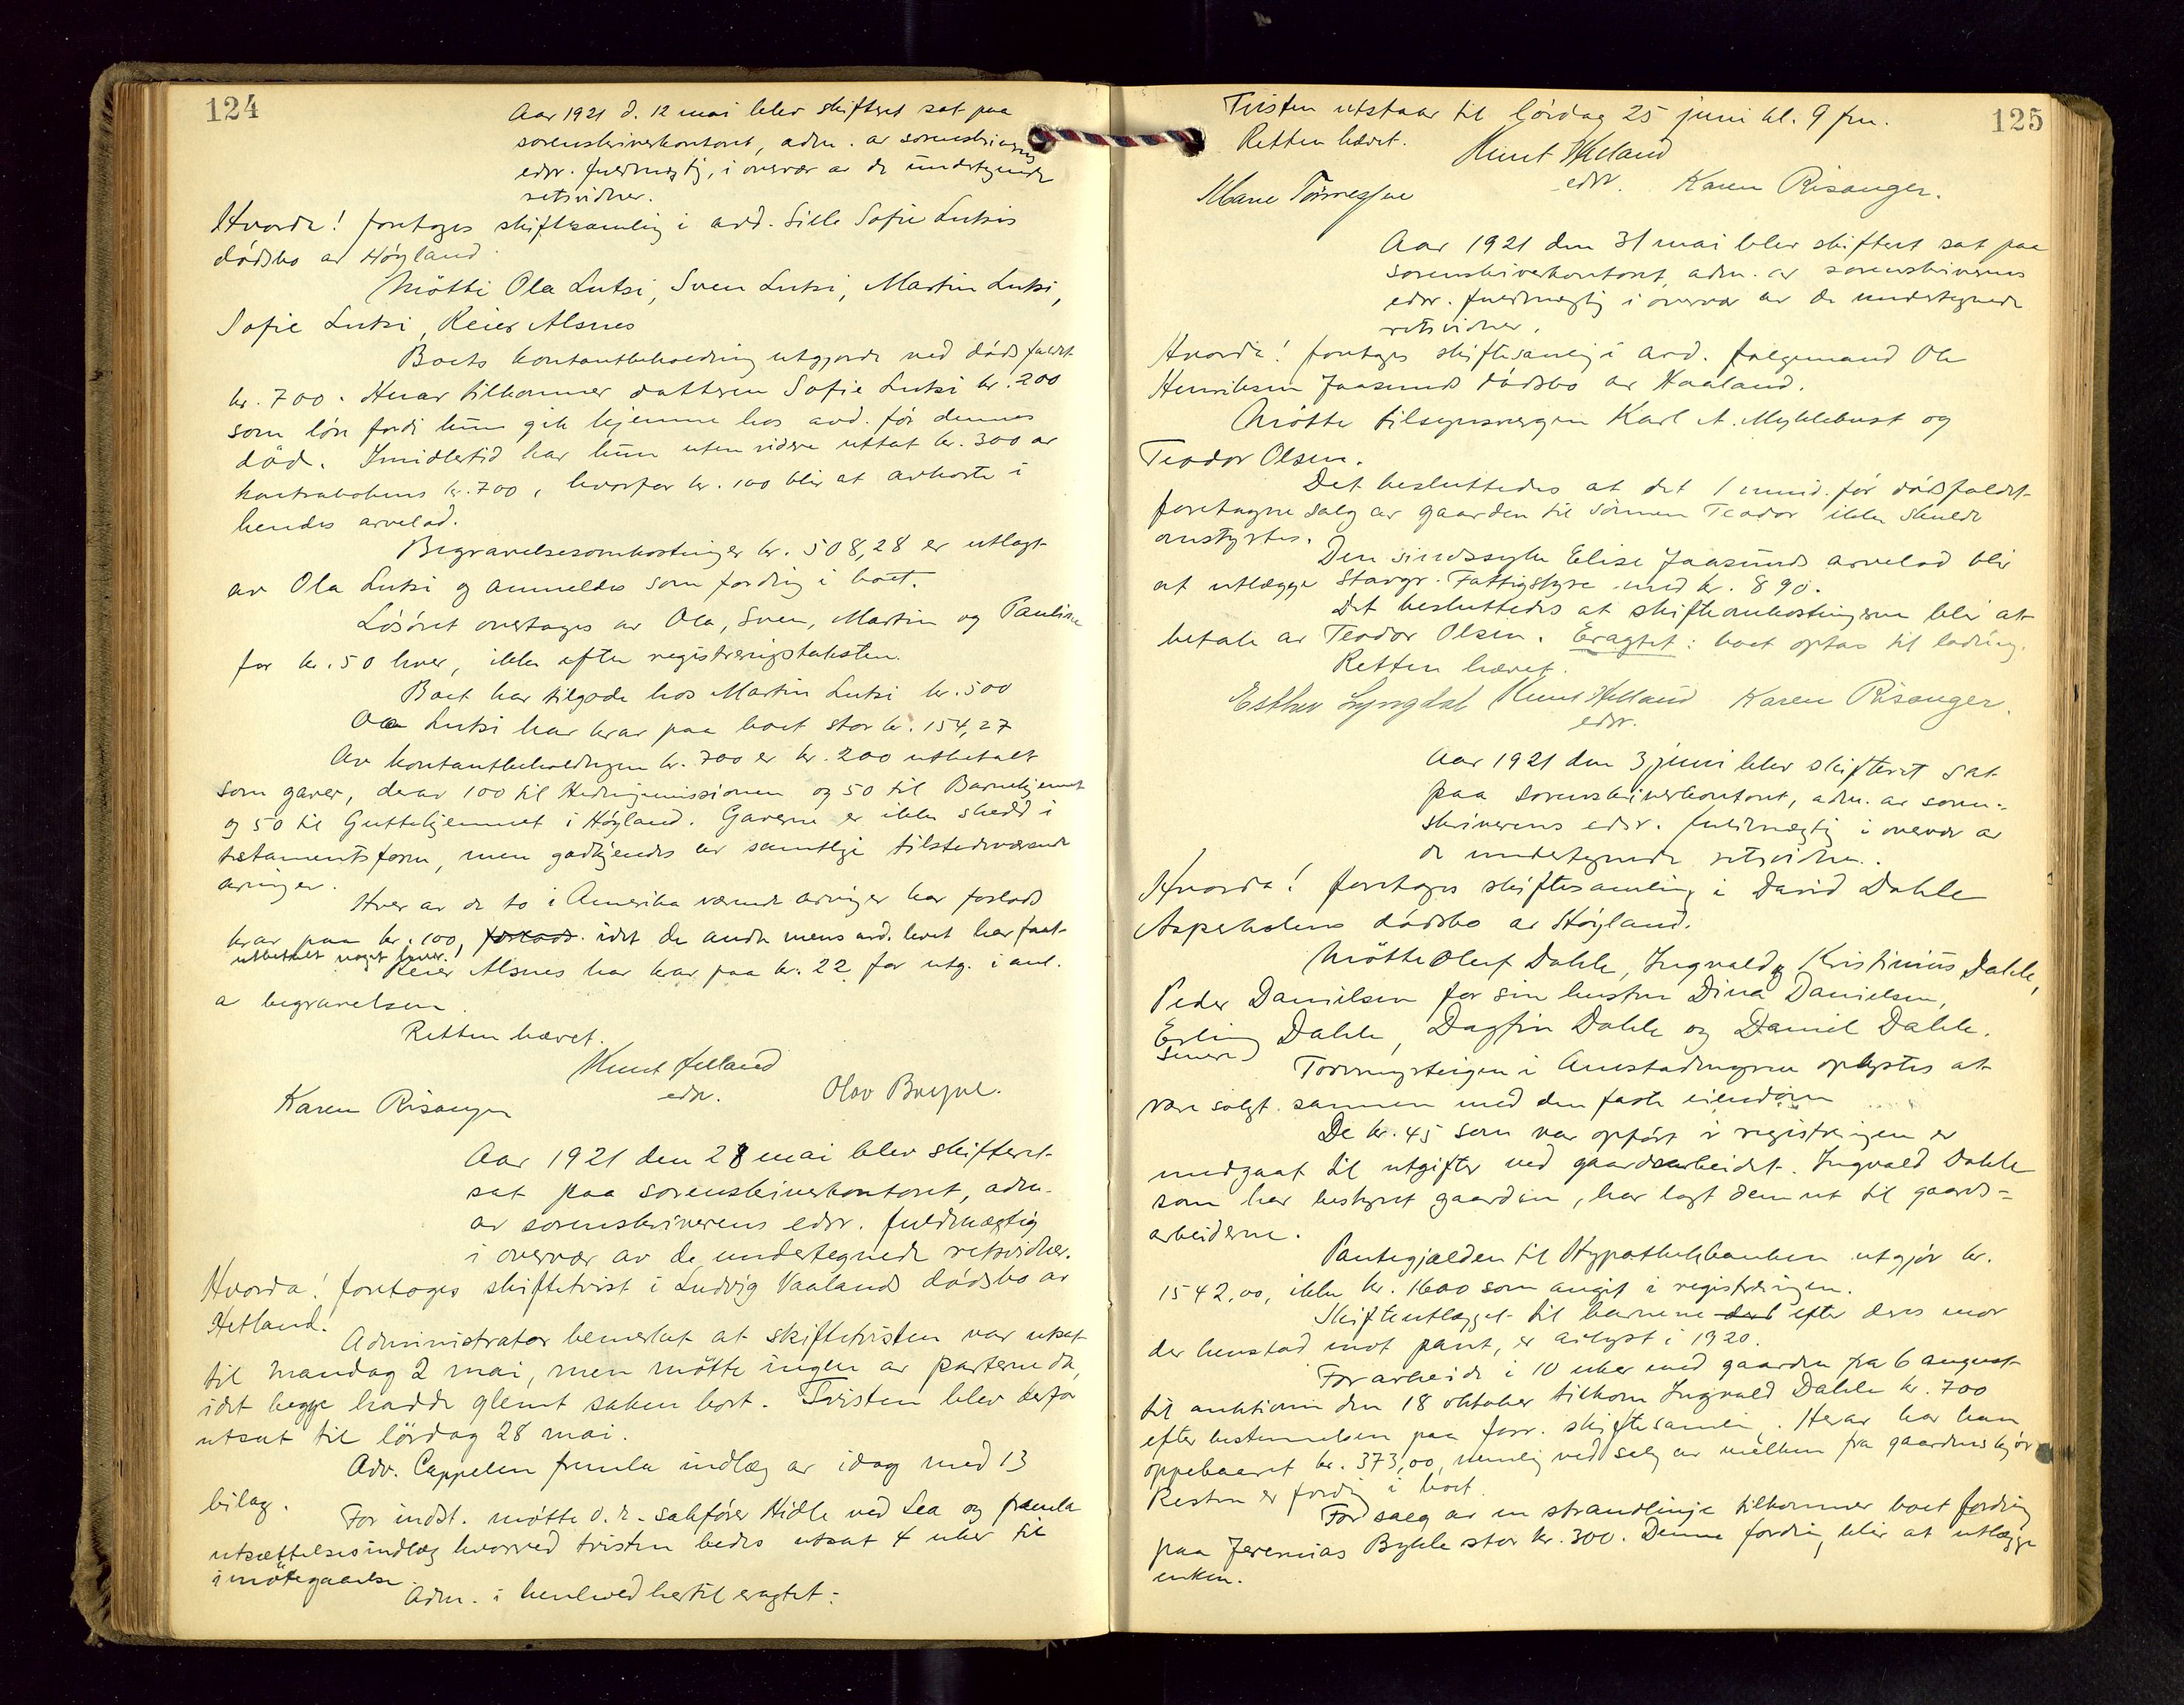 124
Aar 1921 d. 12 mai blev skiftert sat paa
sorenskriverkontoret, adm. av sorenskriverens
edsv. fuldmægtig, i overvær av de undertegnede
retsvidner.
Hvorda! foretages skiftesamling i avd. Sille Sofie Lutsis
dødsbo av Høyland.
Møtte Ola Lutsi, Sven Lutsi, Martin Lutsi,
Sofie Lutsi, Reier Alsnes
Boets kontantbeholdning utgjorde ved dødsfaldet
kr. 700. Herav tilkommer datteren Sofie Lutsi kr. 200
som løn fordi hun gik hjemme hos avd. før dennes
død. Imidlertid har hun uten videre uttat kr. 300 av
kr. 700, hvorfor kr. 100 blir at avkorte i
hendes arvelod.
Begravelsesomkostninger kr. 508,28 er utlagt
av Ola Lutsi og anmeldes som fordring i boet.
Løsøret overtages av Ola, Sven, Martin og Pauline
for kr. 50 hver, ikke efter registreringstaksten.
Boet har tilgode hos Martin Lutsi kr. 500
Ola Lutsi har krav paa boet stor kr. 154,27
Av kontantbeholdningen kr. 700 er kr. 200 utbetalt
som gaver, derav 100 til Hedningemissionen og 50 til Barnehjemmet
og 50 til Guttehjemmet i Høyland. Gaverne er ikke skedd i
testamentsform, men godkjendes av samtlige tilstedeværende
arvinger.
Hver av de to i Amerika værende arvinger har forlods
krav paa kr. 100, forlods. idet de andre mens avd. levet har faat
utbetalt noget hver.
Reier Alsnes har krav paa kr. 22 for utg. i anl.
a begravelsen.
Retten hævet.
Knut Helland
edsv.
Karen Risanger
Olav Bryne.
Aar 1921 den 28 mai blev skifteret
sat paa sorenskriverkontoret, adm.
av sorenskriverens edsv. fuldmægtig
i overvær av de undertegnede retsvidner.
Hvorda! foretoges skiftetvist i Ludvig Vaalands dødsbo av
Hetland.
Administrator bemerket at skiftetvisten var utsat
til mandag 2 mai, men møtte ingen av parterne da,
idet begge hadde glemt saken bort. Tvisten blev derfor
utsat til lørdag 28 mai.
Adv. Cappelen fremla indlæg av idag med 13
bilag.
For indst. møtte o.r. sakfører Hidle ved Lea og fremla
utsættelsesindlæg hvorved tvisten bedes utsat 4 uker til
imøtegaaelse.
Adm. i henhold hertil eragtet:
125
Tvisten utstaar til lørdag 25 juni kl. 9 fm.
Retten hævet.
Knut Helland
edsv.
Karen Risanger.
Marie Tønnessen
Aar 1921 den 31 mai blev skiftert sat paa
sorenskriverkontoret, adm. av sorenskriverens
edsv. fuldmægtig i overvær av de undertegnede
retsvidner.
Hvorda! foretages skiftesamling i avd. følgemand Ole
Henriksen Jaasunds dødsbo av Haaland.
Møtte tilsynsvergen Karl A. Myklebust og
Teodor Olsen.
Det besluttedes at det 1 mnd. før dødsfaldet
foretagne salg av gaarden til sønnen Teodor ikke skulde
omstyrtes.
Den sindssyke Elise Jaasunds arvelod blir
at utlægge Stavgr. Fattigstyre med kr. 890.
Det besluttedes at skifteomkostningerne blir at
betale av Teodor Olsen. Eragtet: boet optas til lodning.
Retten hævet.
Esther Lyngdal Knut Helland Karen Risanger.
edsv.
Aar 1921 den 3 juni blev skifteret sat
paa sorenskriverkontoret, adm. av soren-
skriverens edsv. fuldmægtig i overvær av
de undertegnede retsvidner.
Hvorda! foretages skiftesamling i David Dahle
Aspeholens dødsbo av Høyland.
Møtte Oluf Dahle, Ingvald og Kristinius Dahle,
Peder Danielsen for sin hustru Dina Danielsen,
Erling Dahle, Dagfin Dahle og Daniel Dahle.
senere
Torvmyrteigen i Aanestadmyren oplystes at
være solgt sammen med den faste eiendom
De kr. 45 som var opført i registreringen er
medgaat til utgifter ved gaardsarbeidet. Ingvald Dahle
som har bestyret gaarden, har lagt dem ut til gaards-
arbeiderne.
Pantegjælden til Hypothekbanken utgjør kr.
1542,00, ikke kr. 1600 som angit i registreringen.
Skifteutlægget til barnene det efter deres mor
der henstod mot pant, er avlyst i 1920.
For arbeide i 10 uker med gaarden fra 6 august
til auktionen den 18 oktober tilkom Ingvald Dahle kr. 700
efter bestemmelsen paa forr. skiftesamling. Herav har han
oppebaaret kr. 373,00, nemlig ved salg av melken fra gaardens kjør
Resten er fordring i boet.
For salg av en strandlinje tilkommer boet fordring
paa Jeremias Bykle stor kr. 300. Denne fordring blir at utlægge
enken.